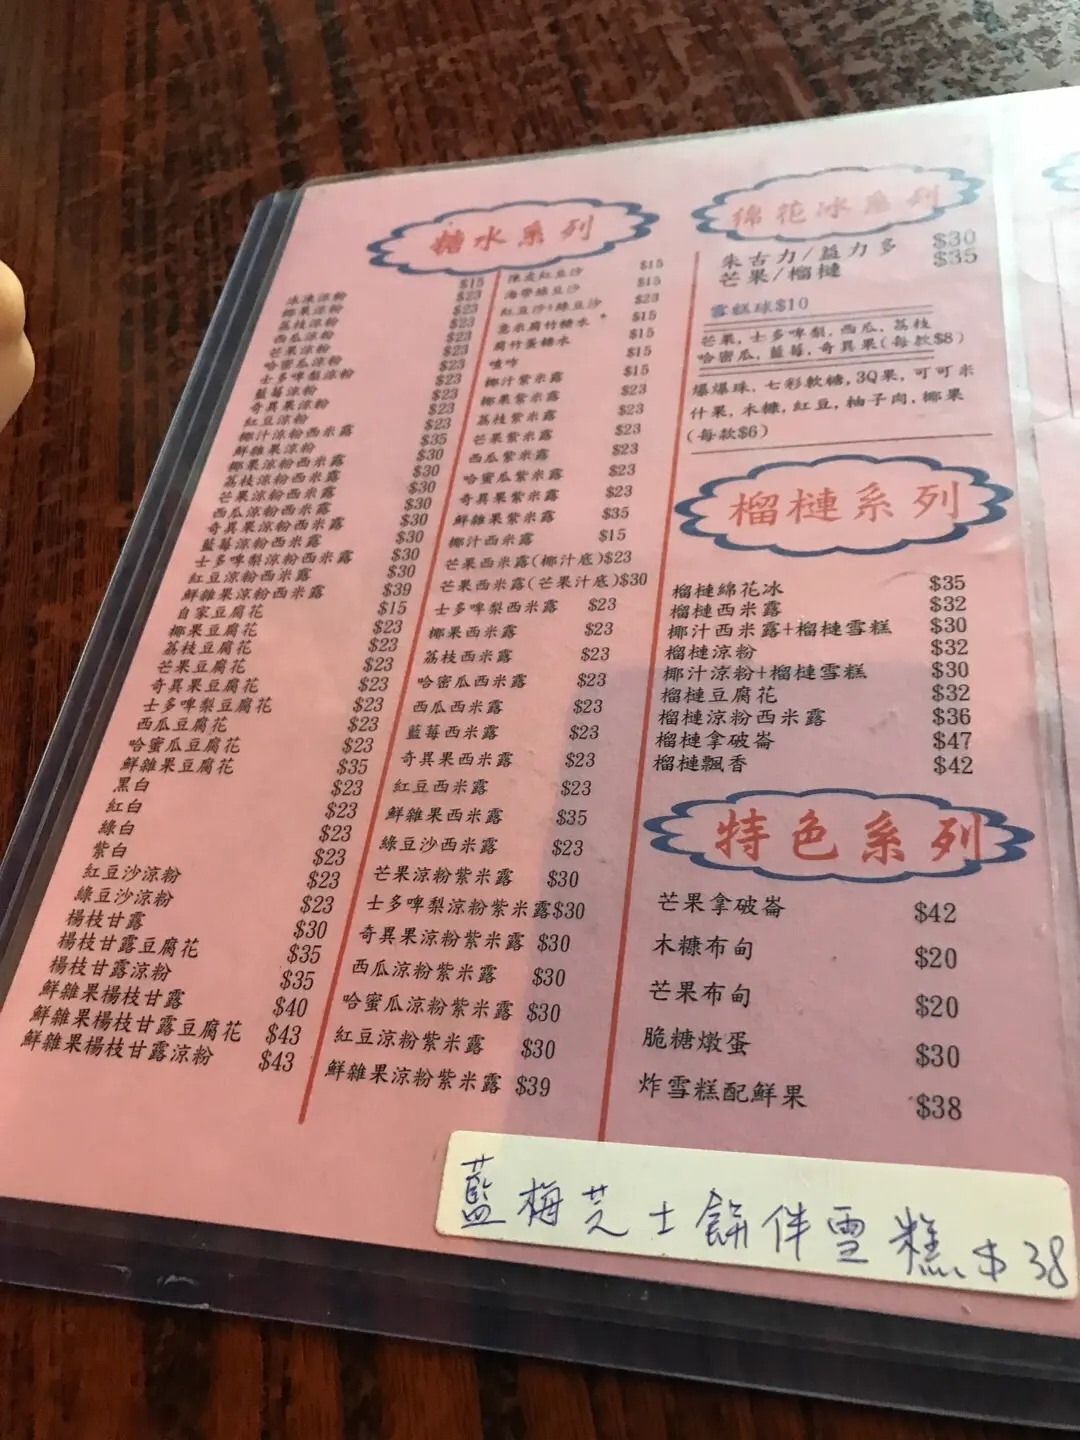 糖水系列
冰凍涼粉 $15
椰果涼粉 $23
荔枝涼粉 $23
西瓜涼粉 $23
芒果涼粉 $23
哈密瓜涼粉 $23
士多啤梨涼粉 $23
藍莓涼粉 $23
奇異果涼粉 $23
紅豆涼粉 $23
椰汁涼粉西米露 $23
鮮雜果涼粉 $35
椰果涼粉西米露 $30
荔枝涼粉西米露 $30
芒果涼粉西米露 $30
西瓜涼粉西米露 $30
奇異果涼粉西米露 $30
藍莓涼粉西米露 $30
士多啤梨涼粉西米露 $30
紅豆涼粉西米露 $30
鮮雜果涼粉西米露 $39
自家豆腐花 $15
椰果豆腐花 $23
荔枝豆腐花 $23
芒果豆腐花 $23
奇異果豆腐花 $23
士多啤梨豆腐花 $23
西瓜豆腐花 $23
哈蜜瓜豆腐花 $23
鮮雜果豆腐花 $35
黑白 $23
紅白 $23
綠白 $23
紫白 $23
紅豆沙涼粉 $23
綠豆沙涼粉 $23
楊枝甘露 $30
楊枝甘露豆腐花 $35
楊枝甘露涼粉 $35
鮮雜果楊枝甘露 $40
鮮雜果楊枝甘露豆腐花 $43
鮮雜果楊枝甘露涼粉 $43
陳皮紅豆沙 $15
海帶綠豆沙 $15
紅豆沙+綠豆沙 $23
薏米腐竹糖水 $15
腐竹蛋糖水 $15
喳咋 $15
椰汁紫米露 $15
椰果紫米露 $23
荔枝紫米露 $23
芒果紫米露 $23
西瓜紫米露 $23
哈蜜瓜紫米露 $23
奇異果紫米露 $23
鮮雜果紫米露 $35
椰汁西米露 $15
芒果西米露(椰汁底)$23
芒果西米露(芒果汁底)$30
士多啤梨西米露 $23
椰果西米露 $23
荔枝西米露 $23
哈密瓜西米露 $23
西瓜西米露 $23
藍莓西米露 $23
奇異果西米露 $23
紅豆西米露 $23
鮮雜果西米露 $35
綠豆沙西米露 $23
芒果涼粉紫米露 $30
士多啤梨涼粉紫米露$30
奇異果涼粉紫米露 $30
西瓜涼粉紫米露 $30
哈蜜瓜涼粉紫米露 $30
紅豆涼粉紫米露 $30
鮮雜果涼粉紫米露 $39
綿花冰系列
朱古力/益力多 $30
芒果/榴槤 $35
雪糕球$10
芒果,士多啤梨,西瓜,荔枝
哈密瓜,藍莓,奇異果(每款$8)
爆爆珠,七彩軟糖,3Q果,可可米
什果,木糠,紅豆,柚子肉,椰果
(每款$6)
榴槤系列
榴槤綿花冰 $35
榴槤西米露 $32
椰汁西米露+榴槤雪糕 $30
榴槤涼粉 $32
椰汁涼粉+榴槤雪糕 $30
榴槤豆腐花 $32
榴槤涼粉西米露 $36
榴槤拿破崙 $47
榴槤飄香 $42
特色系列
芒果拿破崙 $42
木糠布甸 $20
芒果布甸 $20
脆糖燉蛋 $30
炸雪糕配鮮果 $38
藍梅芝士餅伴雪糕 $38